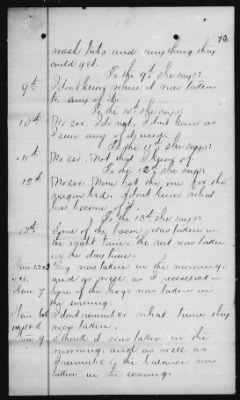 70.
wash tubs and any thing they
could get.
To the 9th she says:
9th I dont know where it was taken
to any of it.
To the 10th she says:
10th No sir. I do not. I dont know as
I saw any of it used.
To the 11th she says:
11th No sir. Not that I know of.
To the 12th she says:
12th No sir. None but the one for the
wagon bed. I dont know what
has become of it.
To the 13th she says:
13th Some of the bacon was taken in
the night time the rest was taken
in the day time.
was taken in the morning.
and as well as I recollect
one of the hogs was taken in
the evening.
I dont remember what time they
was taken.
I think it was taken in the
morning. and as well as
I remember the balance was
taken in the evening.